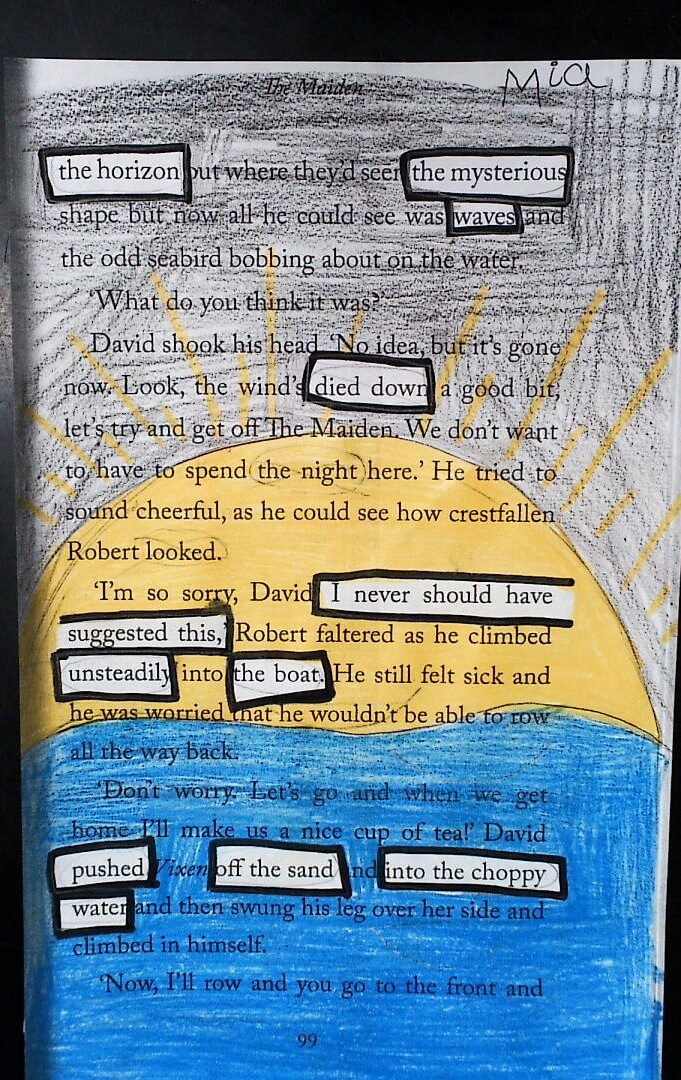 The Maiden
Mia
the horizon but where they'd seen the mysterious
shape but now all he could see was waves and
the odd seabird bobbing about on the water.
'What do you think it was?'
David shook his head. 'No idea, but it's gone
now. Look, the wind's died down a good bit,
let's try and get off The Maiden. We don't want
to have to spend the night here.' He tried to
sound cheerful, as he could see how crestfallen
Robert looked.
'I'm so sorry, David I never should have
suggested this,' Robert faltered as he climbed
unsteadily into the boat. He still felt sick and
he was worried that he wouldn't be able to row
all the way back.
'Don't worry. Let's go and when we get
home I'll make us a nice cup of tea!' David
pushed Vixen off the sand and into the choppy
water and then swung his leg over her side and
climbed in himself.
'Now, I'll row and you go to the front and
99